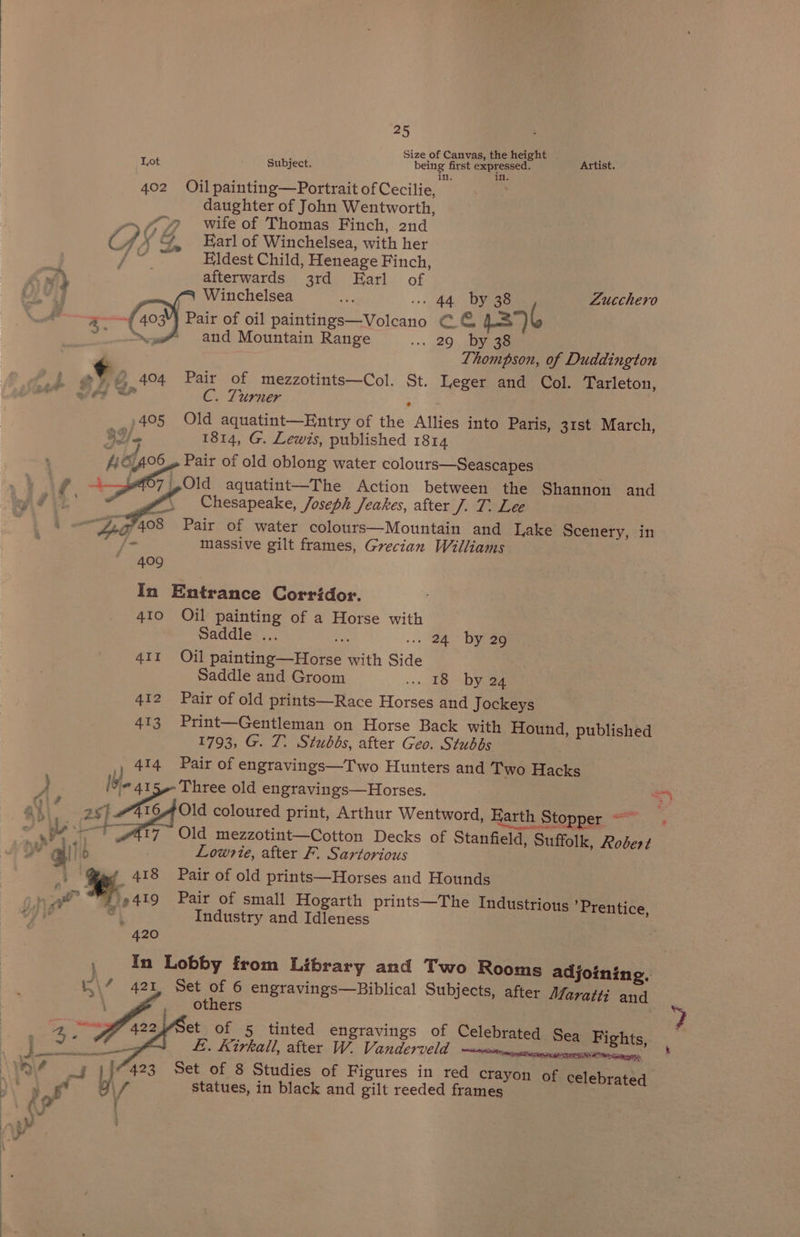 25
Lot Subject. Size of Canvas, the height being first expressed. Artist.
in. in.
402 Oil painting—Portrait of Cecilie,
daughter of John Wentworth,
wife of Thomas Finch, 2nd
Earl of Winchelsea, with her
Eldest Child, Heneage Finch,
afterwards 3rd Earl of
Winchelsea ... ... 44 by 38 Zucchero
403 Pair of oil paintings—Volcano
and Mountain Range ... 29 by 38
Thompson, of Duddington
404 Pair of mezzotints—Col. St. Leger and Col. Tarleton,
C. Turner
405 Old aquatint—Entry of the Allies into Paris, 31st March,
1814, G. Lewis, published 1814
406 Pair of old oblong water colours—Seascapes
407 Old aquatint—The Action between the Shannon and
Chesapeake, Joseph Jeakes, after J. T. Lee
408 Pair of water colours—Mountain and Lake Scenery, in
massive gilt frames, Grecian Williams
409
In Entrance Corridor.
410 Oil painting of a Horse with
Saddle ... ... ... 24 by 29
411 Oil painting—Horse with Side
Saddle and Groom ... 18 by 24
412 Pair of old prints—Race Horses and Jockeys
413 Print—Gentleman on Horse Back with Hound, published
1793, G. T. Stubbs, after Geo. Stubbs
414 Pair of engravings—Two Hunters and Two Hacks
415 Three old engravings—Horses.
416 Old coloured print, Arthur Wentword, Earth Stopper
417 Old mezzotint—Cotton Decks of Stanfield, Suffolk, Robert
Lowrie, after F. Sartorious
418 Pair of old prints—Horses and Hounds
419 Pair of small Hogarth prints—The Industrious 'Prentice,
Industry and Idleness
420
In Lobby from Library and Two Rooms adjoining.
421 Set of 6 engravings—Biblical Subjects, after Maratti and
others
422 Set of 5 tinted engravings of Celebrated Sea Fights,
E. Kirkall, after W. Vanderveld
423 Set of 8 Studies of Figures in red crayon of celebrated
statues, in black and gilt reeded frames